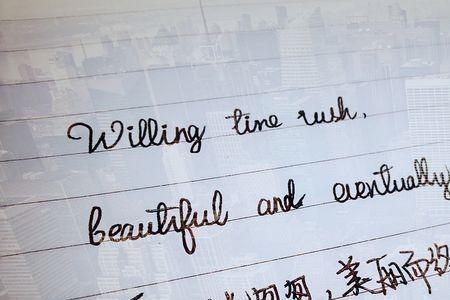 Willing time rush,
beautiful and eventually
匆匆,美丽而终